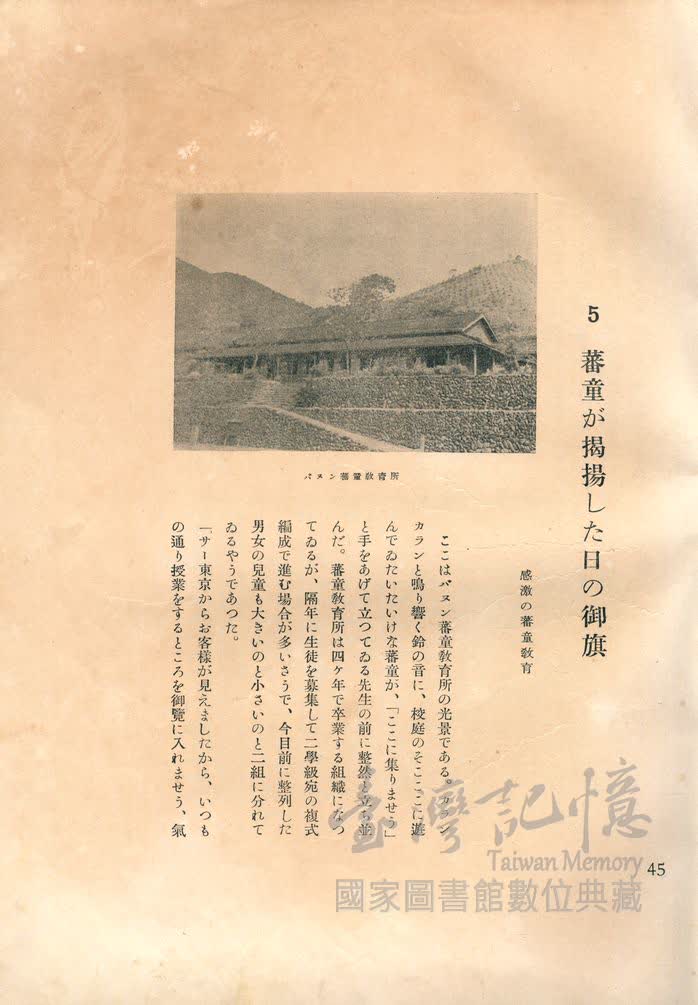 5 蕃童が揭揚した日の御旗
感激の蕃童敎育
バヌン蕃童敎育所
ここはバヌン蕃童敎育所の光景である。カラン
カランと鳴り響く鈴の音に、校庭のそこここに遊
んでゐたいたいけな蕃童が、「ここに集りませう」
と手をあげて立つてゐる先生の前に整然と立ち並
んだ。蕃童敎育所は四ケ年で卒業する組織になつ
てゐるが、隔年に生徒を募集して二學級宛の複式
編成で進む場合が多いさうで、今目前に整列した
男女の兒童も大きいのと小さいのと二組に分れて
ゐるやうであつた。
「サー東京からお客樣が見えましたから、いつも
の通り授業をするところを御覽に入れませう、氣
臺灣記憶
Taiwan Memory
國家圖書館數位典藏
45